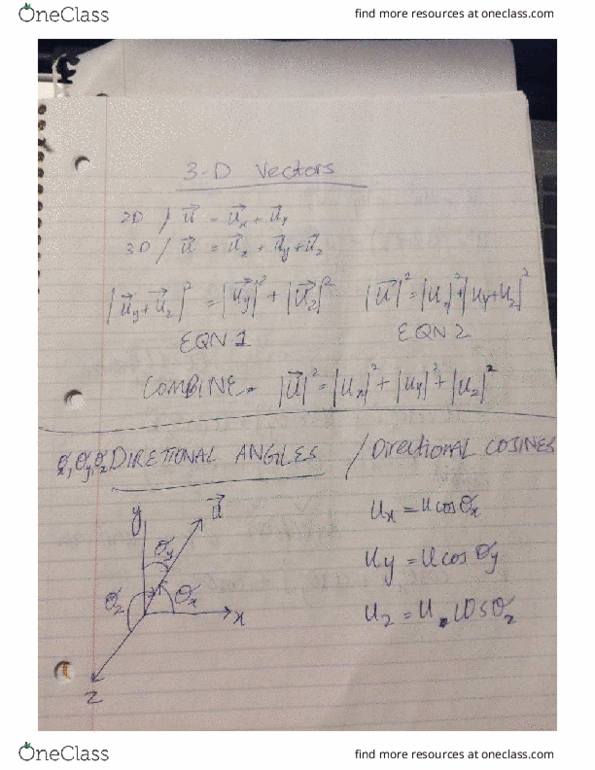 OneClass
find more resources at oneclass.com
3-D Vectors
2D / u⃗ = u⃗x + u⃗y
3D / u⃗ = u⃗x + u⃗y + u⃗z
|u⃗y + u⃗z|² = |u⃗y|² + |u⃗z|² |u⃗|² = |ux|² + |uy + uz|²
EQN 1 EQN 2
COMBINE = |u⃗|² = |ux|² + |uy|² + |uz|²
θx, θy, θz DIRETIONAL ANGLES / Directional COSINES
y u⃗ ux = u cos θx
θy
θz θx x uy = u cos θy
z uz = u. cos θz
OneClass
find more resources at oneclass.com